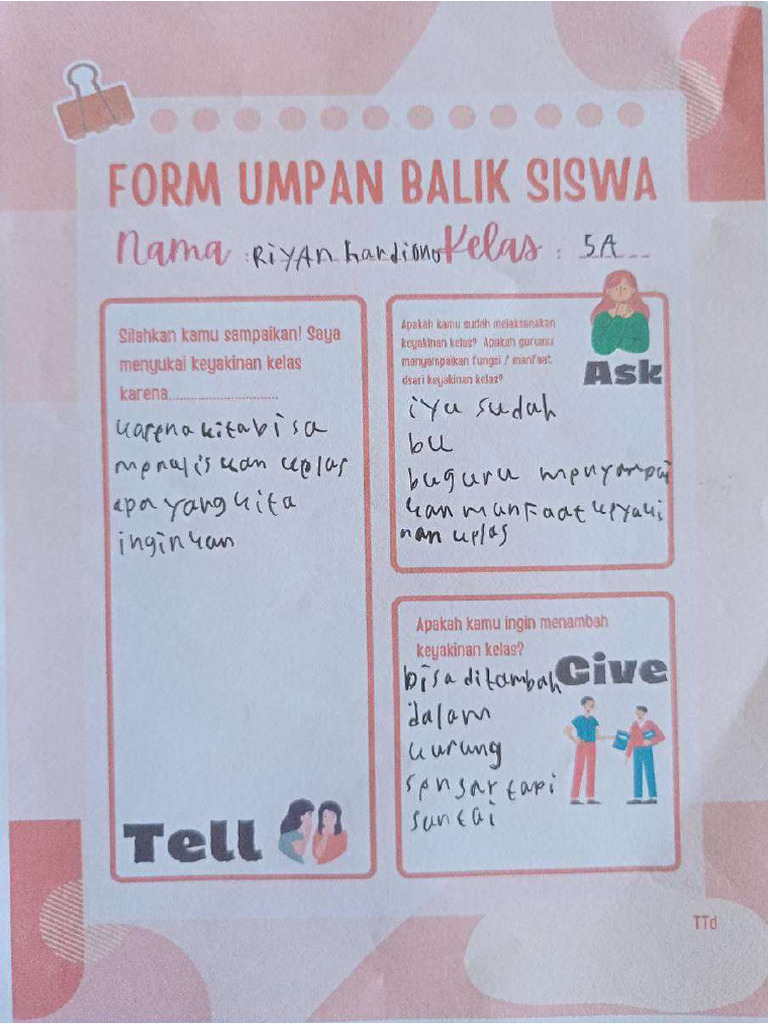 FORM UMPAN BALIK SISWA
Nama : RiYAn hardiono Kelas : 5A
Silahkan kamu sampaikan! Saya
menyukai keyakinan kelas
karena............................
karena kita bisa
menuliskan kelas
apa yang kita
inginkan
Tell
Apakah kamu sudah melaksanakan
keyakinan kelas? Apakah gurumu
manyampaikan fungsi / manfaat
dsari keyakinan kelas?
Ask
iya sudah
bu
buguru menyampai
kan manfaat keyaki
nan kelas
Apakah kamu ingin menambah
keyakinan kelas?
Give
bisa ditambah
dalam
kurung
tapi
santai
TTd